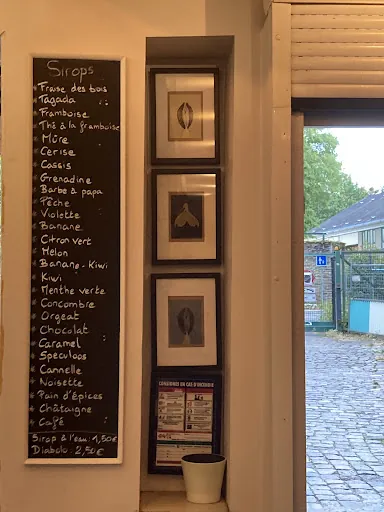 Sirops
* Fraise des bois
* Tagada
* Framboise
* Thé à la framboise
* Mûre
* Cerise
* Cassis
* Grenadine
* Barbe à papa
* Pêche
* Violette
* Banane
* Citron vert
* Melon
* Banane-Kiwi
* Kiwi
* Menthe verte
* Concombre
* Orgeat
* Chocolat
* Caramel
* Spéculoos
* Cannelle
* Noisette
* Pain d'épices
* Châtaigne
* Café
Sirop à l'eau: 1,50€
Diabolo: 2,50€
CONSIGNES EN CAS D'INCENDIE